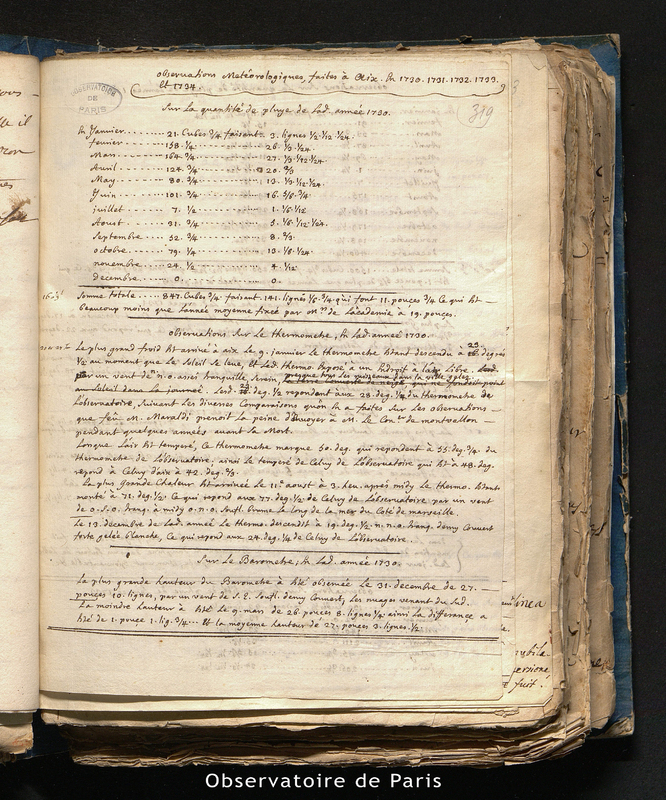 observations Meteorologiques, faites à Aix. En 1730. 1731. 1732. 1733.
Et 1734.
OBSERVATOIRE
DE
PARIS
319
Sur La quantité de pluye de Lad. année 1730.
En Janvier ...... 21. Cubes 3/4 faisant. 3. lignes 1/2 1/12 1/24.
fevrier ...... 158. 1/4 ...... 26. 1/3 1/24.
Mars ...... 164. 3/4 ...... 27. 1/3 1/12 1/24.
Avril ...... 124. 3/4 ...... 20. 2/3
May ...... 80. 3/4 ...... 13. 1/3 1/12 1/24.
Juin ...... 101. 3/4 ...... 16.
juillet ...... 7. 1/2 ...... 1. 1/6 1/12
Aoust ...... 31. 3/4 ...... 5. 1/6 1/12 1/24.
Septembre ...... 52. 3/4 ...... 8. 2/3.
octobre ...... 79. 1/4 ...... 13. 1/6 1/24.
novembre ...... 24. 1/2 ...... 4. 1/12
decembre ...... 0. ...... 0.
Somme totale ...... 847. Cubes 3/4 faisant. 141. lignes qui font 11. pouces 3/4 Ce qui Est
beaucoup moins que L'année moyenne fixée par de L'academie à 19. pouces.
observations Sur Le thermometre, En Lad. année 1730.
Le plus grand froid Est arrivé à aix Le 9. janvier Le thermometre Etant descendu à 23. degrés
1/2 au moment que Le Soleil se Leve, Et Led. thermo. Exposé a un Endroit à L'air Libre.
par un vent de n.o. assez tranquille, Serein, presque tous les ruisseaux dans la ville gelez
au Soleil dans La journée. Lesd. 23. deg. 1/2 repondent aux 28. deg. 1/4 du thermometre de
L'observatoire, Suivant Les diverses Comparaisons qu'on En a faites Sur Les observations
que feu M. Maraldi prenoit La peine d'Envoyer à M. Le Con.er de montvallon
pendant quelques années avant Sa Mort.
Lorsque L'air Est temperé, Ce thermometre marque 50. deg. qui repondent à 55. deg. 3/4. du
thermometre de L'observatoire. ainsi Le temperé de Celuy de L'observatoire qui Est à 48. deg.
repond à Celuy d'aix à 42. deg. 2/3.
La plus Grande Chaleur Est arrivée Le 11e aoust à 3. heu. après midy Le thermo. Etant
monté à 71. deg. 1/2 Ce qui repond aux 77. deg. 1/2 de Celuy de L'observatoire par un vent
de o.S.o. Srang. à midy o.n.o. Souf. brume Le long de La mer du Coté de marseille.
Le 13. decembre de Lad. année Le thermo. descendit à 19. deg. 1/2. n.n.o. Srang. demy Couvert
forte gelée blanche, Ce qui repond aux 24. deg. 1/4 de Celuy de L'observatoire.
Sur Le Barometre, En Lad. année 1730.
La plus grande hauteur du Barometre à Eté observée Le 31. decembre de 27.
pouces 10. lignes, par un vent de S.E. Souf. demy Couvert, Les nuages venant du Sud.
La moindre hauteur à Eté Le 9. mars de 26. pouces 8. lignes 1/4 ainsi La difference a
Eté de 1. pouce 1. lig. 3/4 ... Et La moyenne hauteur de 27. pouces 3. lignes. 1/2
linea
fuit.
Observatoire de Paris